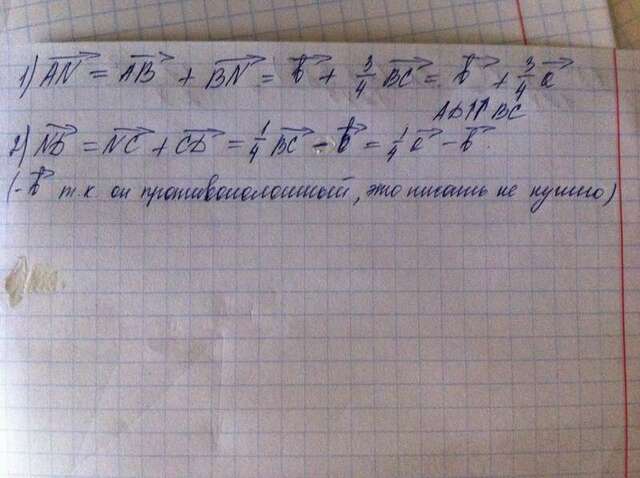 1) AN = AB + BN = b + 3/4 BC = b + 3/4 a
AD⇈BC
2) ND = NC + CD = 1/4 BC - b = 1/4 a - b.
(-b т.к он противоположный, это писать не нужно)